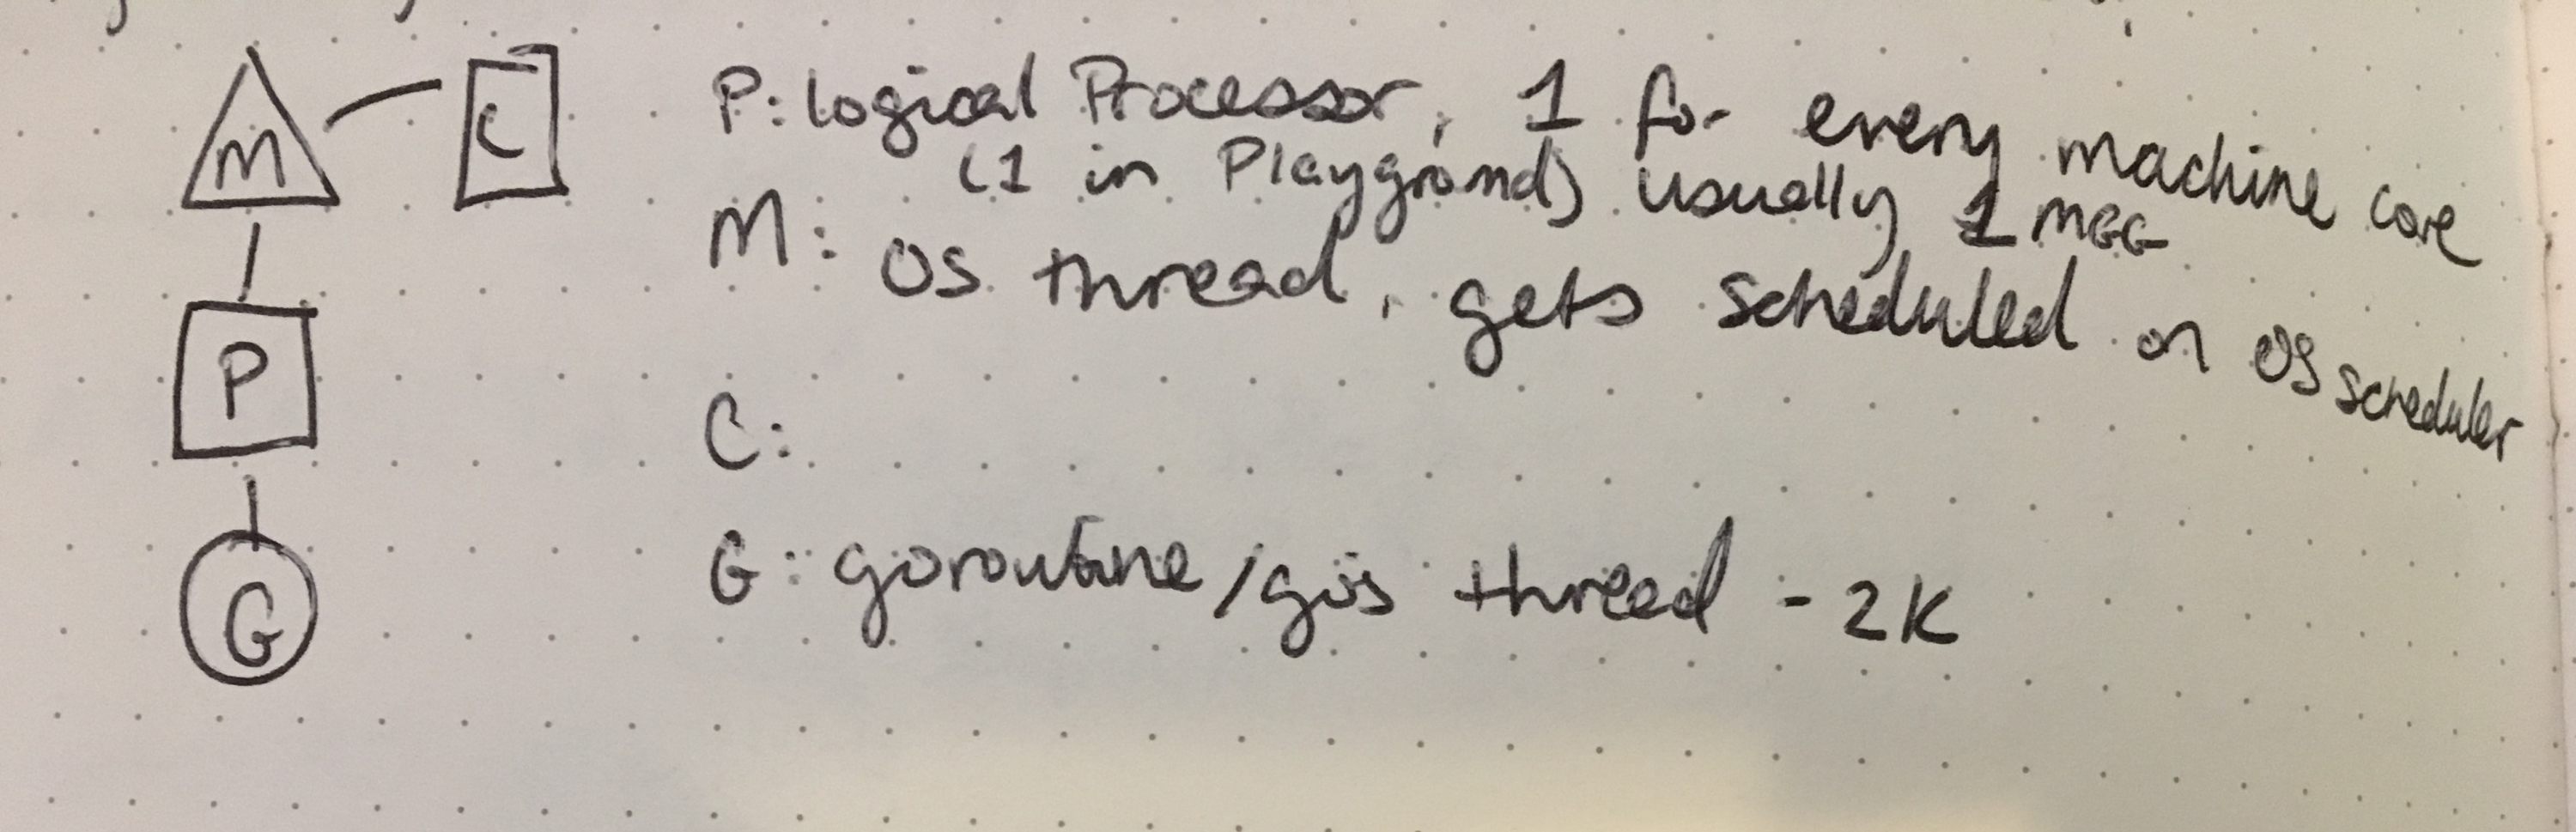 M
C
P
G
P: logical Processor, 1 for every machine core
(1 in Playground) usually 1 MEG
M: OS thread, gets scheduled on OS scheduler
C:
G: goroutine/go's thread - 2K